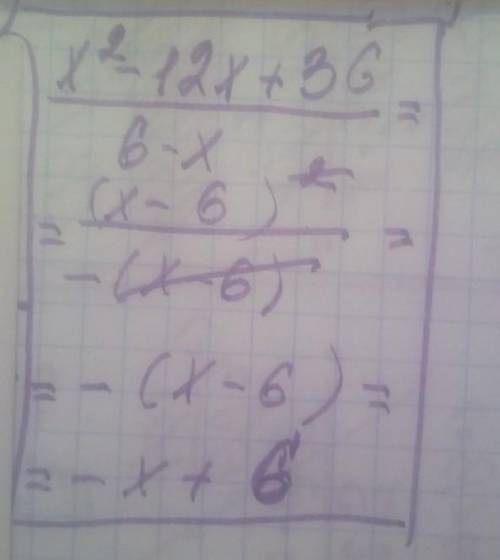 x² - 12x + 36 =
6 - x
= (x - 6)² =
- (x - 6)
= - (x - 6) =
= - x + 6